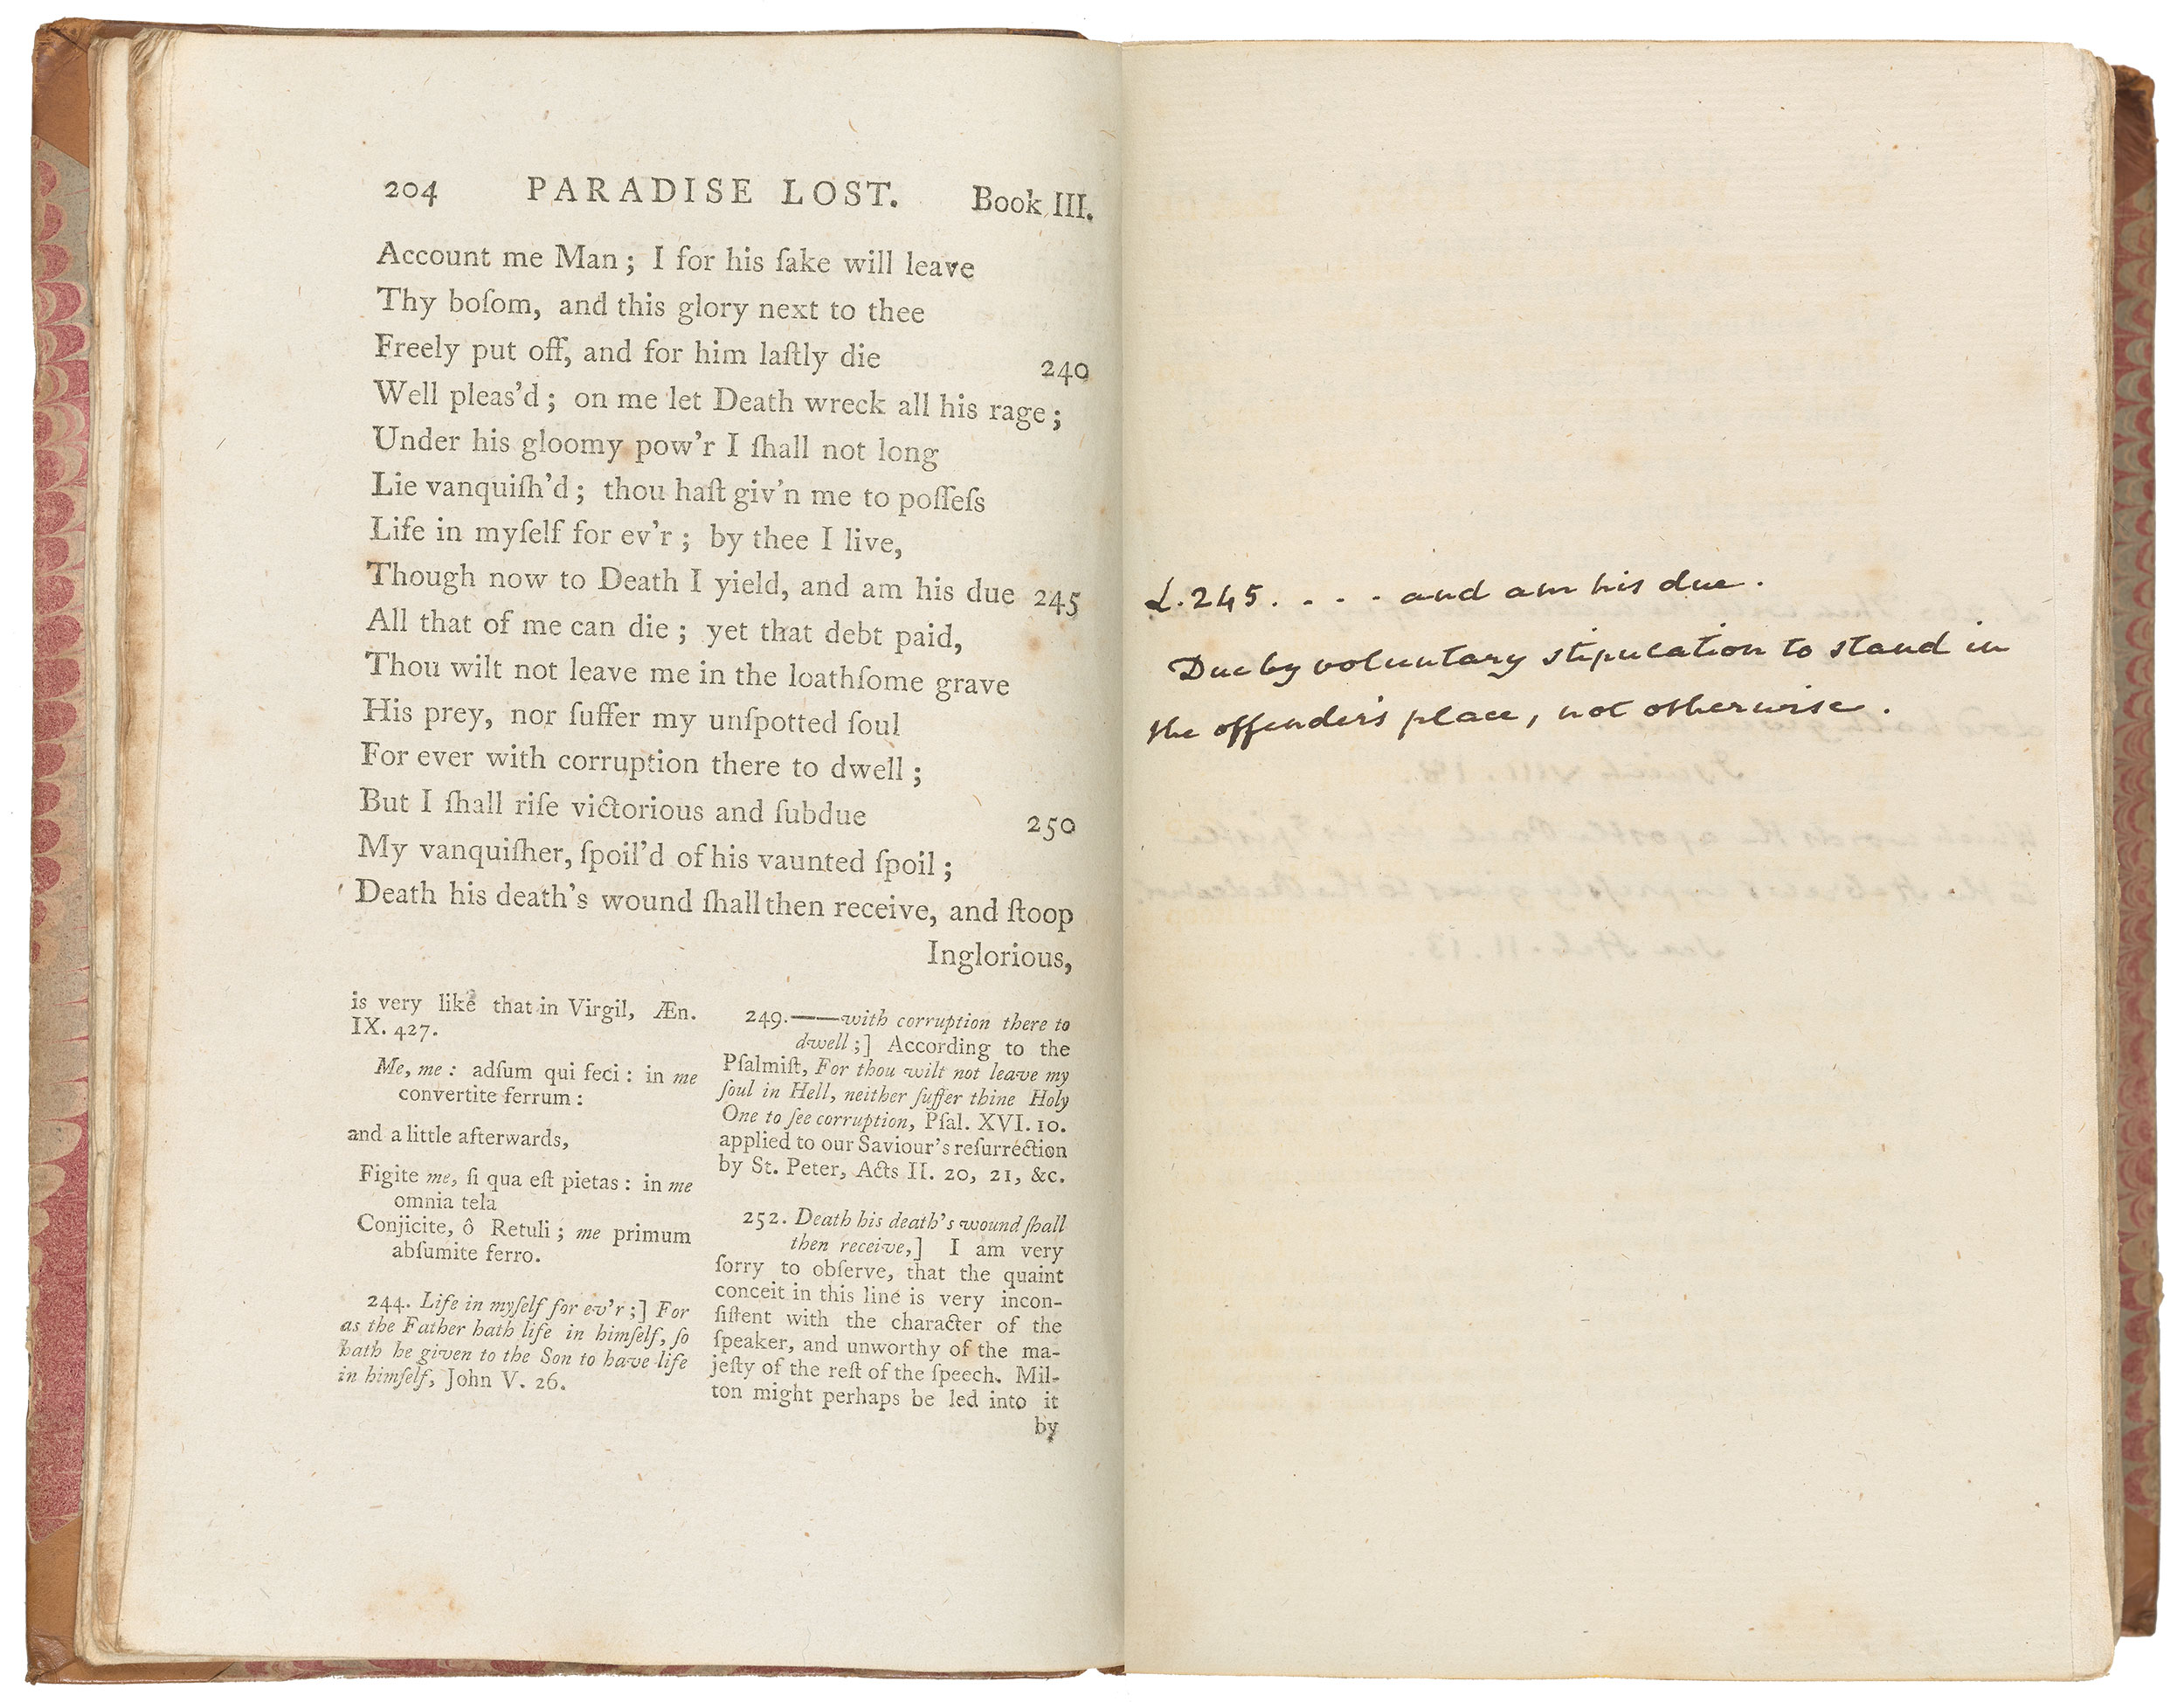 204 PARADISE LOST. Book III.
Account me Man; I for his ſake will leave
Thy boſom, and this glory next to thee
Freely put off, and for him laſtly die 240
Well pleas'd; on me let Death wreck all his rage;
Under his gloomy pow'r I ſhall not long
Lie vanquiſh'd; thou haſt giv'n me to poſſeſs
Life in myſelf for ev'r; by thee I live,
Though now to Death I yield, and am his due 245
All that of me can die; yet that debt paid,
Thou wilt not leave me in the loathſome grave
His prey, nor ſuffer my unſpotted ſoul
For ever with corruption there to dwell;
But I ſhall riſe victorious and ſubdue 250
My vanquiſher, ſpoil'd of his vaunted ſpoil;
Death his death's wound ſhall then receive, and ſtoop
Inglorious,
is very like that in Virgil, Æn.
IX. 427.
Me, me: adſum qui feci: in me
convertite ferrum:
and a little afterwards,
Figite me, ſi qua eſt pietas: in me
omnia tela
Conjicite, ô Retuli; me primum
abſumite ferro.
244. Life in myſelf for ev'r;] For
as the Father hath life in himſelf, ſo
hath he given to the Son to have life
in himſelf, John V. 26.
249.——with corruption there to
dwell;] According to the
Pſalmiſt, For thou wilt not leave my
ſoul in Hell, neither ſuffer thine Holy
One to ſee corruption, Pſal. XVI. 10.
applied to our Saviour's reſurrection
by St. Peter, Acts II. 20, 21, &c.
252. Death his death's wound ſhall
then receive,] I am very
ſorry to obſerve, that the quaint
conceit in this line is very incon-
ſiſtent with the character of the
ſpeaker, and unworthy of the ma-
jeſty of the reſt of the ſpeech. Mil-
ton might perhaps be led into it
by
L. 245. . . . and am his due.
Due by voluntary stipulation to stand in
the offender's place, not otherwise.